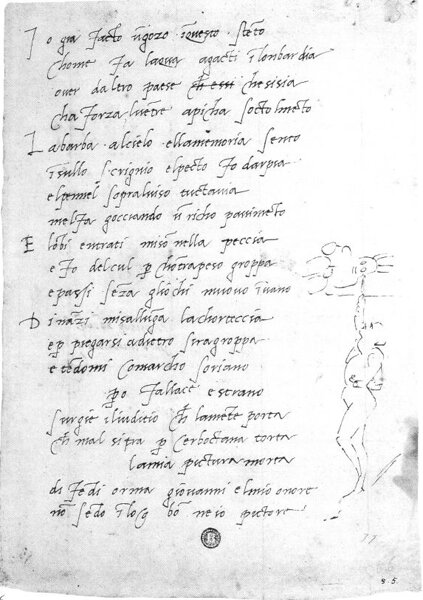 Io gia facto ũ gozo ĩ questo stẽto
chome fa laqua agacti ĩ lonbardia
over daltro paese ch essi chesisia
cha forza luẽtre apicha socto lmẽto
La barba alcielo ellamemoria sento
ĩsullo scrignio elpecto fo darpia
elpennel sopraluiso tuctauia
melfa gocciando ũ richo pauimẽto
E lobi entrati miso nella peccia
e fo delcul p chõtrapeso groppa
epassi sẽza gliochi muouo ĩuano
Dinãzi misalluga lachorteccia
e p piegarsi adietro siragroppa
e tẽdomi comarcho soriano
po fallace e strano
surgie iliuditio ch lamẽte porta
ch mal sitra p cerboctana torta
lamia pictura morta
di fedi orma giovanni elmio onore
nõ sẽdo ĩ log bõ ne io pictore
8 5